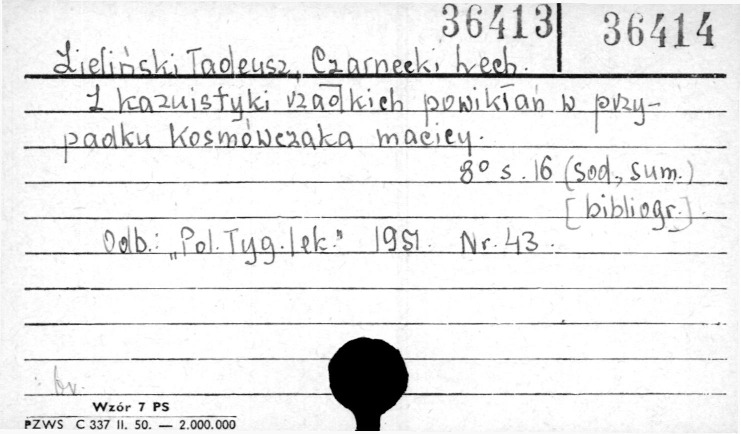 36413 36414
Zieliński Tadeusz, Czarnecki Lech.
Z kazuistyki rzadkich powikłań w przy-
padku Kosmówczaka macicy.
8° s. 16 (sod., sum.)
[bibliogr.].
Odb.: „Pol. Tyg. lek." 1951. Nr. 43.
br.
Wzór 7 PS
PZWS C 337 II. 50. — 2.000.000